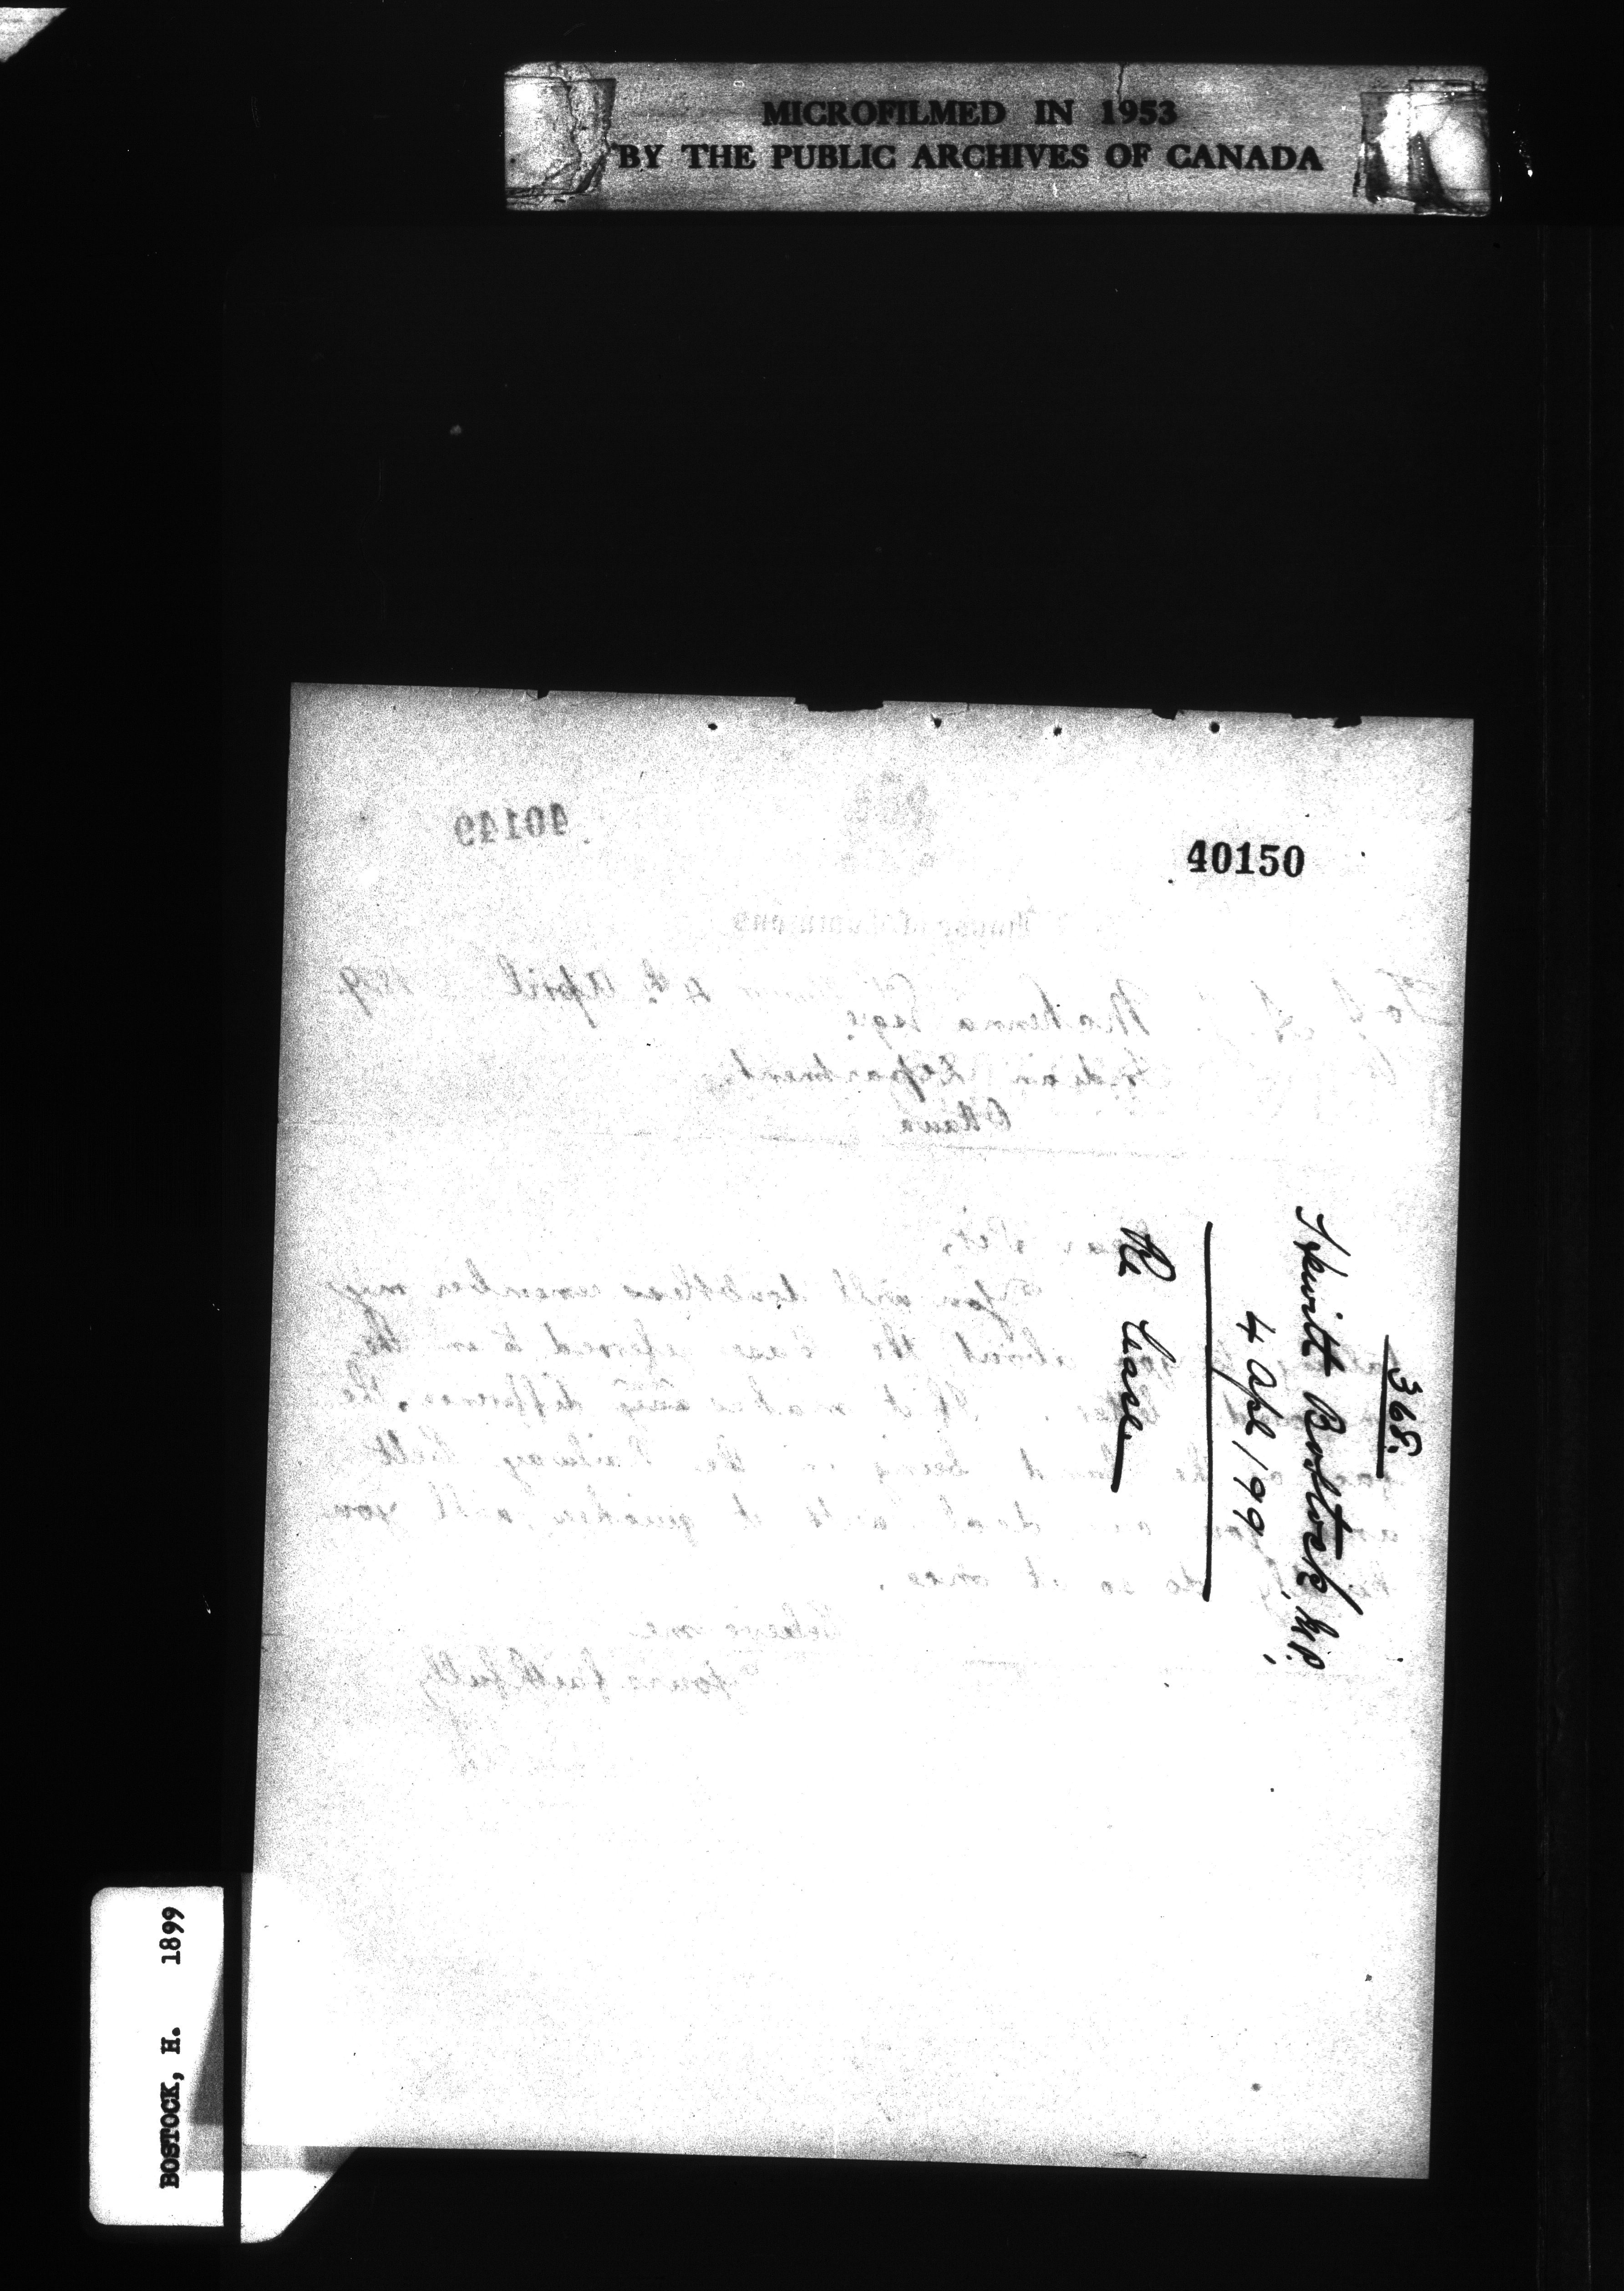 MICROFILMED IN 1953
BY THE PUBLIC ARCHIVES OF CANADA
40149
40150
House of Commons
4th April 1899
McKenna Esqre
Indian Department
Ottawa
Dear Sir,
You will doubtless remember my
about the lease referred to in the
If it makes any difference, the
the land being in the Railway Belt
deal with it quicker, will you
do so at once.
Believe me
Yours faithfully
368.
Hewitt Bostock, M.P.
4 Apl 199
Re Lease.
BOSTOCK, H. 1899